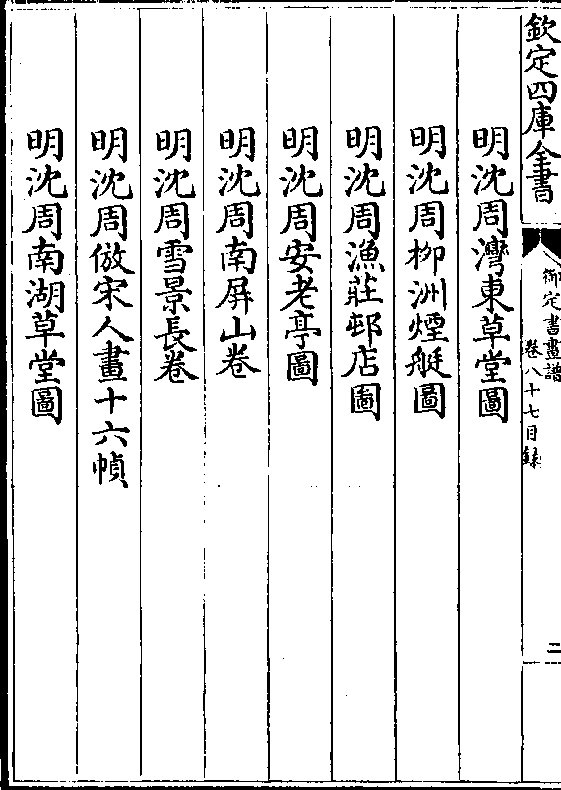 欽定四庫全書
御定書畫譜
卷八十七目録
二
明沈周灣東草堂圖
明沈周柳洲煙艇圖
明沈周漁莊邨店圖
明沈周安老亭圖
明沈周南屏山卷
明沈周雪景長卷
明沈周倣宋人畫十六幀
明沈周南湖草堂圖